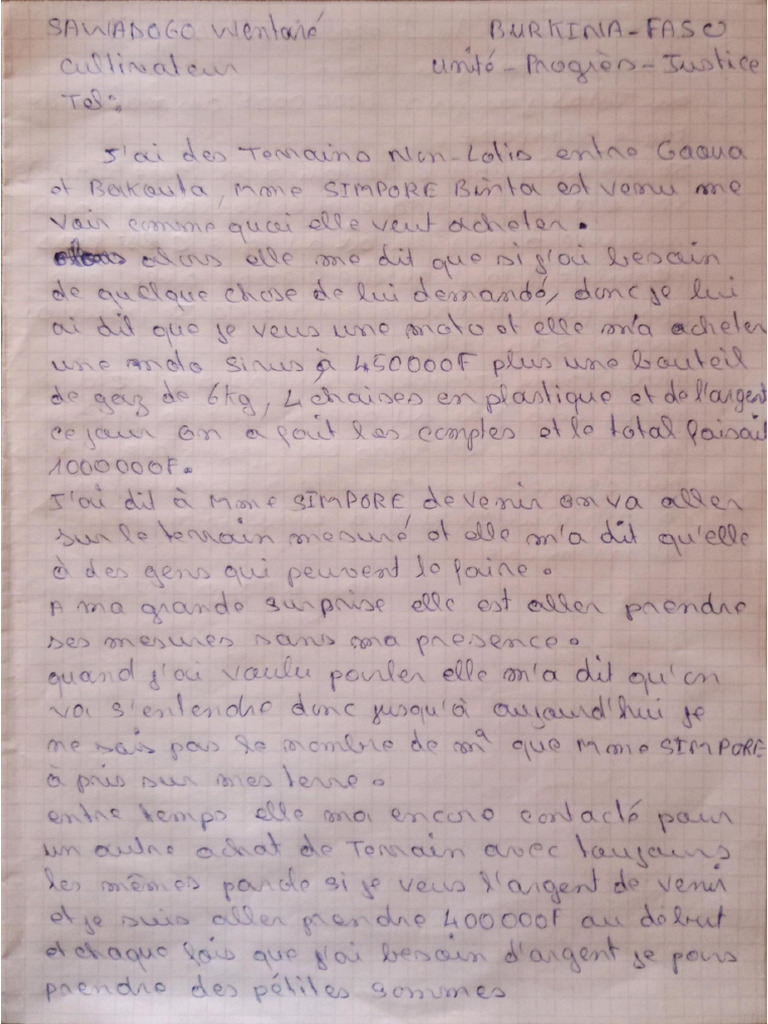 SAWADOGO Wentaré BURKINA-FASO
Cultivateur Unité-Progrès-Justice
Tel:
J'ai des Terrains Non-Lotis entre Gaoua
et Bakouta, Mme SIMPORE Binta est venu me
voir comme quoi elle veut acheter.
alors elle me dit que si j'ai besoin
de quelque chose de lui demandé, donc je lui
ai dit que je veus une moto et elle m'a acheter
une moto sirius à 450000F plus une bouteil
de gaz de 6kg, 4 chaises en plastique et de l'argent
ce jour on a fait les comptes et le total faisait
1000000F.
J'ai dit à Mme SIMPORE de venir on va aller
sur le terrain mesuré et elle m'a dit qu'elle
à des gens qui peuvent le faire.
A ma grande surprise elle est aller prendre
ses mesures sans ma presence.
quand j'ai voulu parler elle m'a dit qu'on
va s'entendre donc jusqu'à aujourd'hui je
ne sais pas le nombre de m² que Mme SIMPORE
à pris sur mes terre.
entre temps elle ma encore contacté pour
un autre achat de Terrain avec toujours
les mêmes parole si je veus l'argent de venir
et je suis aller prendre 400000F au début
et chaque fois que j'ai besoin d'argent je pars
prendre des pétites sommes